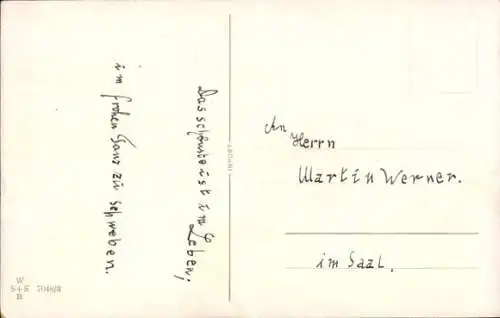 Das schönste ist im Leben;
im frohen Tanz zu schweben.
An
Herrn
Martin Werner.
im Saal.
W
S+S
B
IMPORT